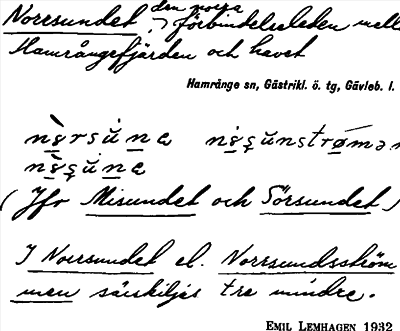 Norrsundet, den norra förbindelseleden mell
Hamrångefjärden och havet
Hamrånge sn, Gästrikl. ö. tg, Gävleb. l.
(Jfr Misundet och Sörsundet)
I Norrsundet el. Norrsundsström
men särskiljes tre mindre.
EMIL LEMHAGEN 1932